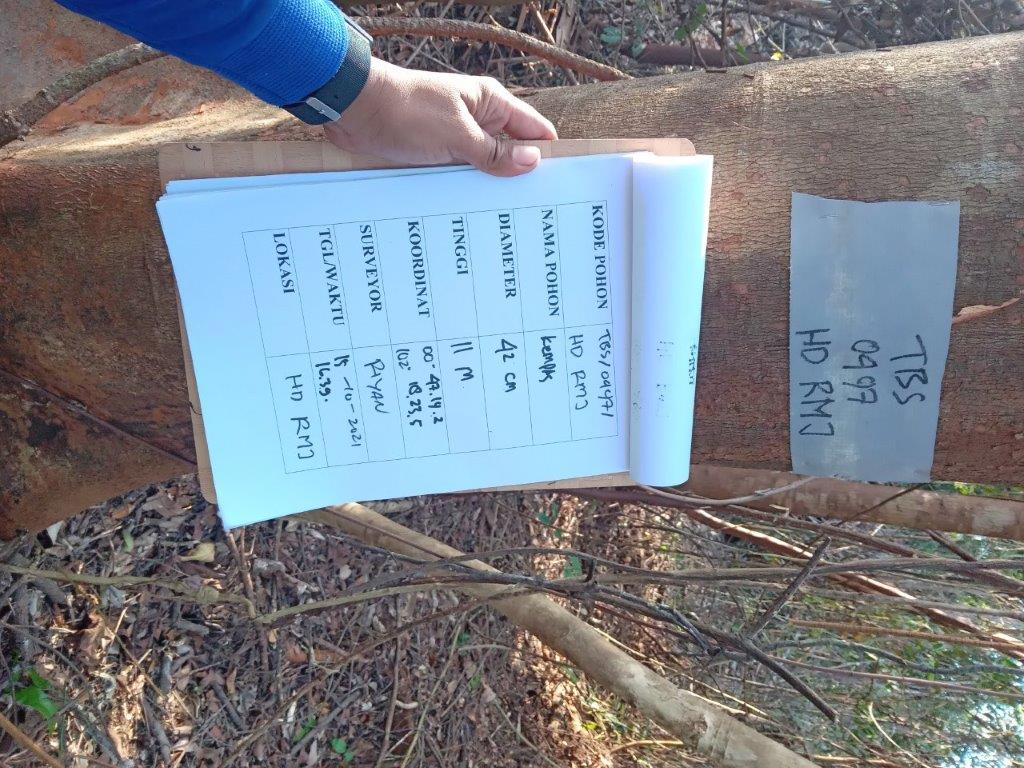 TBS
0497
HD RMJ
KODE POHON TBS/0497/
HD RMJ
NAMA POHON Kempas
DIAMETER 42 CM
TINGGI 11 M
KOORDINAT 00° 47.14.2
102° 18.23.5
SURVEYOR RIYAN
TGL/WAKTU 15 -10-2021
16.39.
LOKASI HD RMJ